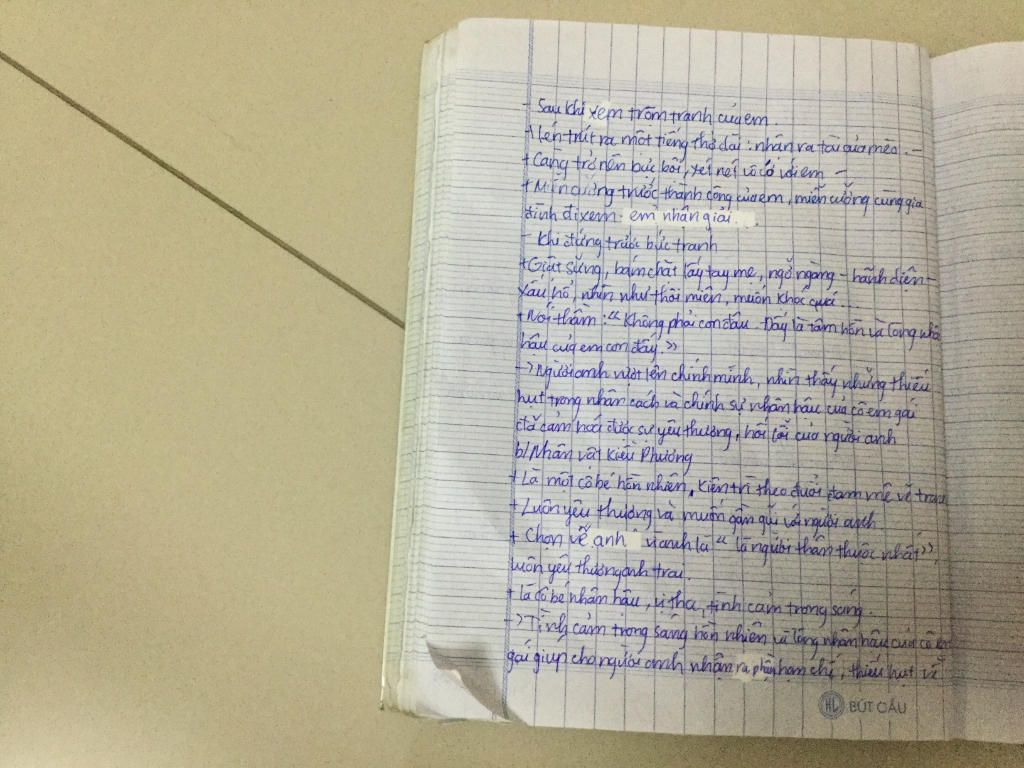 - Sau khi xem trộm tranh của em.
+ Lén trút ra một tiếng thở dài: nhận ra tài của mèo. -
+ Càng trở nên bực bội, xét nét vô cớ với em -
+ Miễn cưỡng trước thành công của em, miễn cưỡng cùng gia
đình đi xem em nhận giải.
- Khi đứng trước bức tranh
+ Giật sững, bám chặt lấy tay mẹ, ngỡ ngàng - hãnh diện -
xấu hổ, nhìn như thôi miên, muốn khóc quá...
+ Nói thầm: "Không phải con đâu. Đấy là tâm hồn và lòng nhân
hậu của em con đấy."
-> Người anh vượt lên chính mình, nhìn thấy những thiếu
hụt trong nhân cách và chính sự nhân hậu của cô em gái
đã cảm hoá được sự yêu thương, hối lỗi của người anh
b/ Nhân vật Kiều Phương
+ Là một cô bé hồn nhiên, kiên trì theo đuổi đam mê vẽ tranh
+ Luôn yêu thương và muốn gần gũi với người anh
+ Chọn vẽ anh vì anh là "là người thân thuộc nhất",
luôn yêu thương anh trai.
+ là cô bé nhân hậu, vị tha, tình cảm trong sáng.
-> Tình cảm trong sáng hồn nhiên và lòng nhân hậu của cô em
gái giúp cho người anh nhận ra phần hạn chế, thiếu hụt về
HL BÚT CÂU